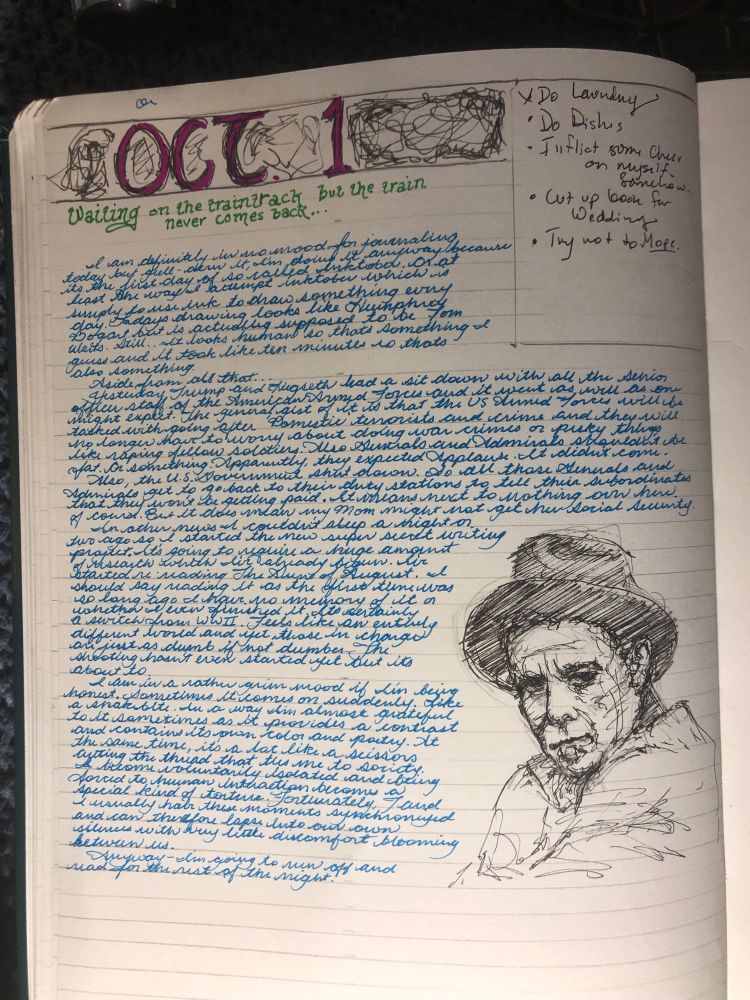 OCT. 1
Waiting on the traintrack but the train
never comes back...
x Do Laundry
• Do Dishes
• Inflict some cheer
on myself
somehow..
• Cut up book for
Wedding
• Try not to Mope.
I am definitely in no mood for journaling
today but gull-dern it, I'm doing it anyway because
its the first day of so called Inktober. Or at
least the way I attempt Inktober which is
simply to use ink to draw something every
day. Todays drawing looks like Humphrey
Bogart but is actually supposed to be Tom
Waits. Still... It looks human so thats something I
guess and it took like ten minutes so thats
also something.
Aside from all that...
Yesterday, Trump and Hegseth had a sit down with all the senior
officer staff of the American Armed Forces and it went as well as one
might expect. The general gist of it is that the US Armed Forces will be
tasked with going after Domestic terrorists and crime and they will
no longer have to worry about doing war crimes or pesky things
like raping fellow soldiers. Also Generals and Admirals shouldn't be
fat. Or something. Apparently, they expected Applause. It didn't come.
Also, the U.S. Government shut down. So all those Generals and
Admirals get to go back to their duty stations to tell their subordinates
that they won't be getting paid. It means next to nothing over here
of course. But it does mean my Mom might not get her Social Security.
In other news I couldn't sleep a night or
two ago so I started the new super secret writing
project. Its going to require a huge amount
of research which I've already begun. I've
started re-reading The Guns of August. I
should say reading it as the first time was
so long ago I have no memory of it or
whether I even finished it. Its certainly
a switch from WWII. Feels like an entirely
different world and yet those in charge
are just as dumb if not dumber. The
shooting hasn't even started yet but its
about to.
I am in a rather grim mood if I'm being
honest. Sometimes it comes on suddenly. Like
a snakebite. In a way I'm almost grateful
to it sometimes as it provides a contrast
and contains its own color and poetry. At
the same time, its a lot like a scissors
cutting the thread that ties me to society.
I become voluntarily isolated and being
forced to human interaction becomes a
special kind of torture. Fortunately, T and
I usually have these moments synchronized
and can therefore lapse into our own
silences with very little discomfort blooming
between us.
Anyway - I'm going to run off and
read for the rest of the night.